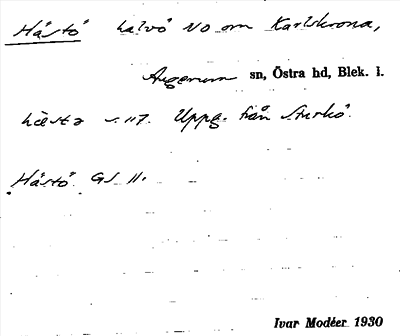 Hästö halvö NO om Karlskrona,
Augerum sn, Östra hd, Blek. l.
Uppg. från Sturkö.
Hästö. GS 11.
Ivar Modéer 1930